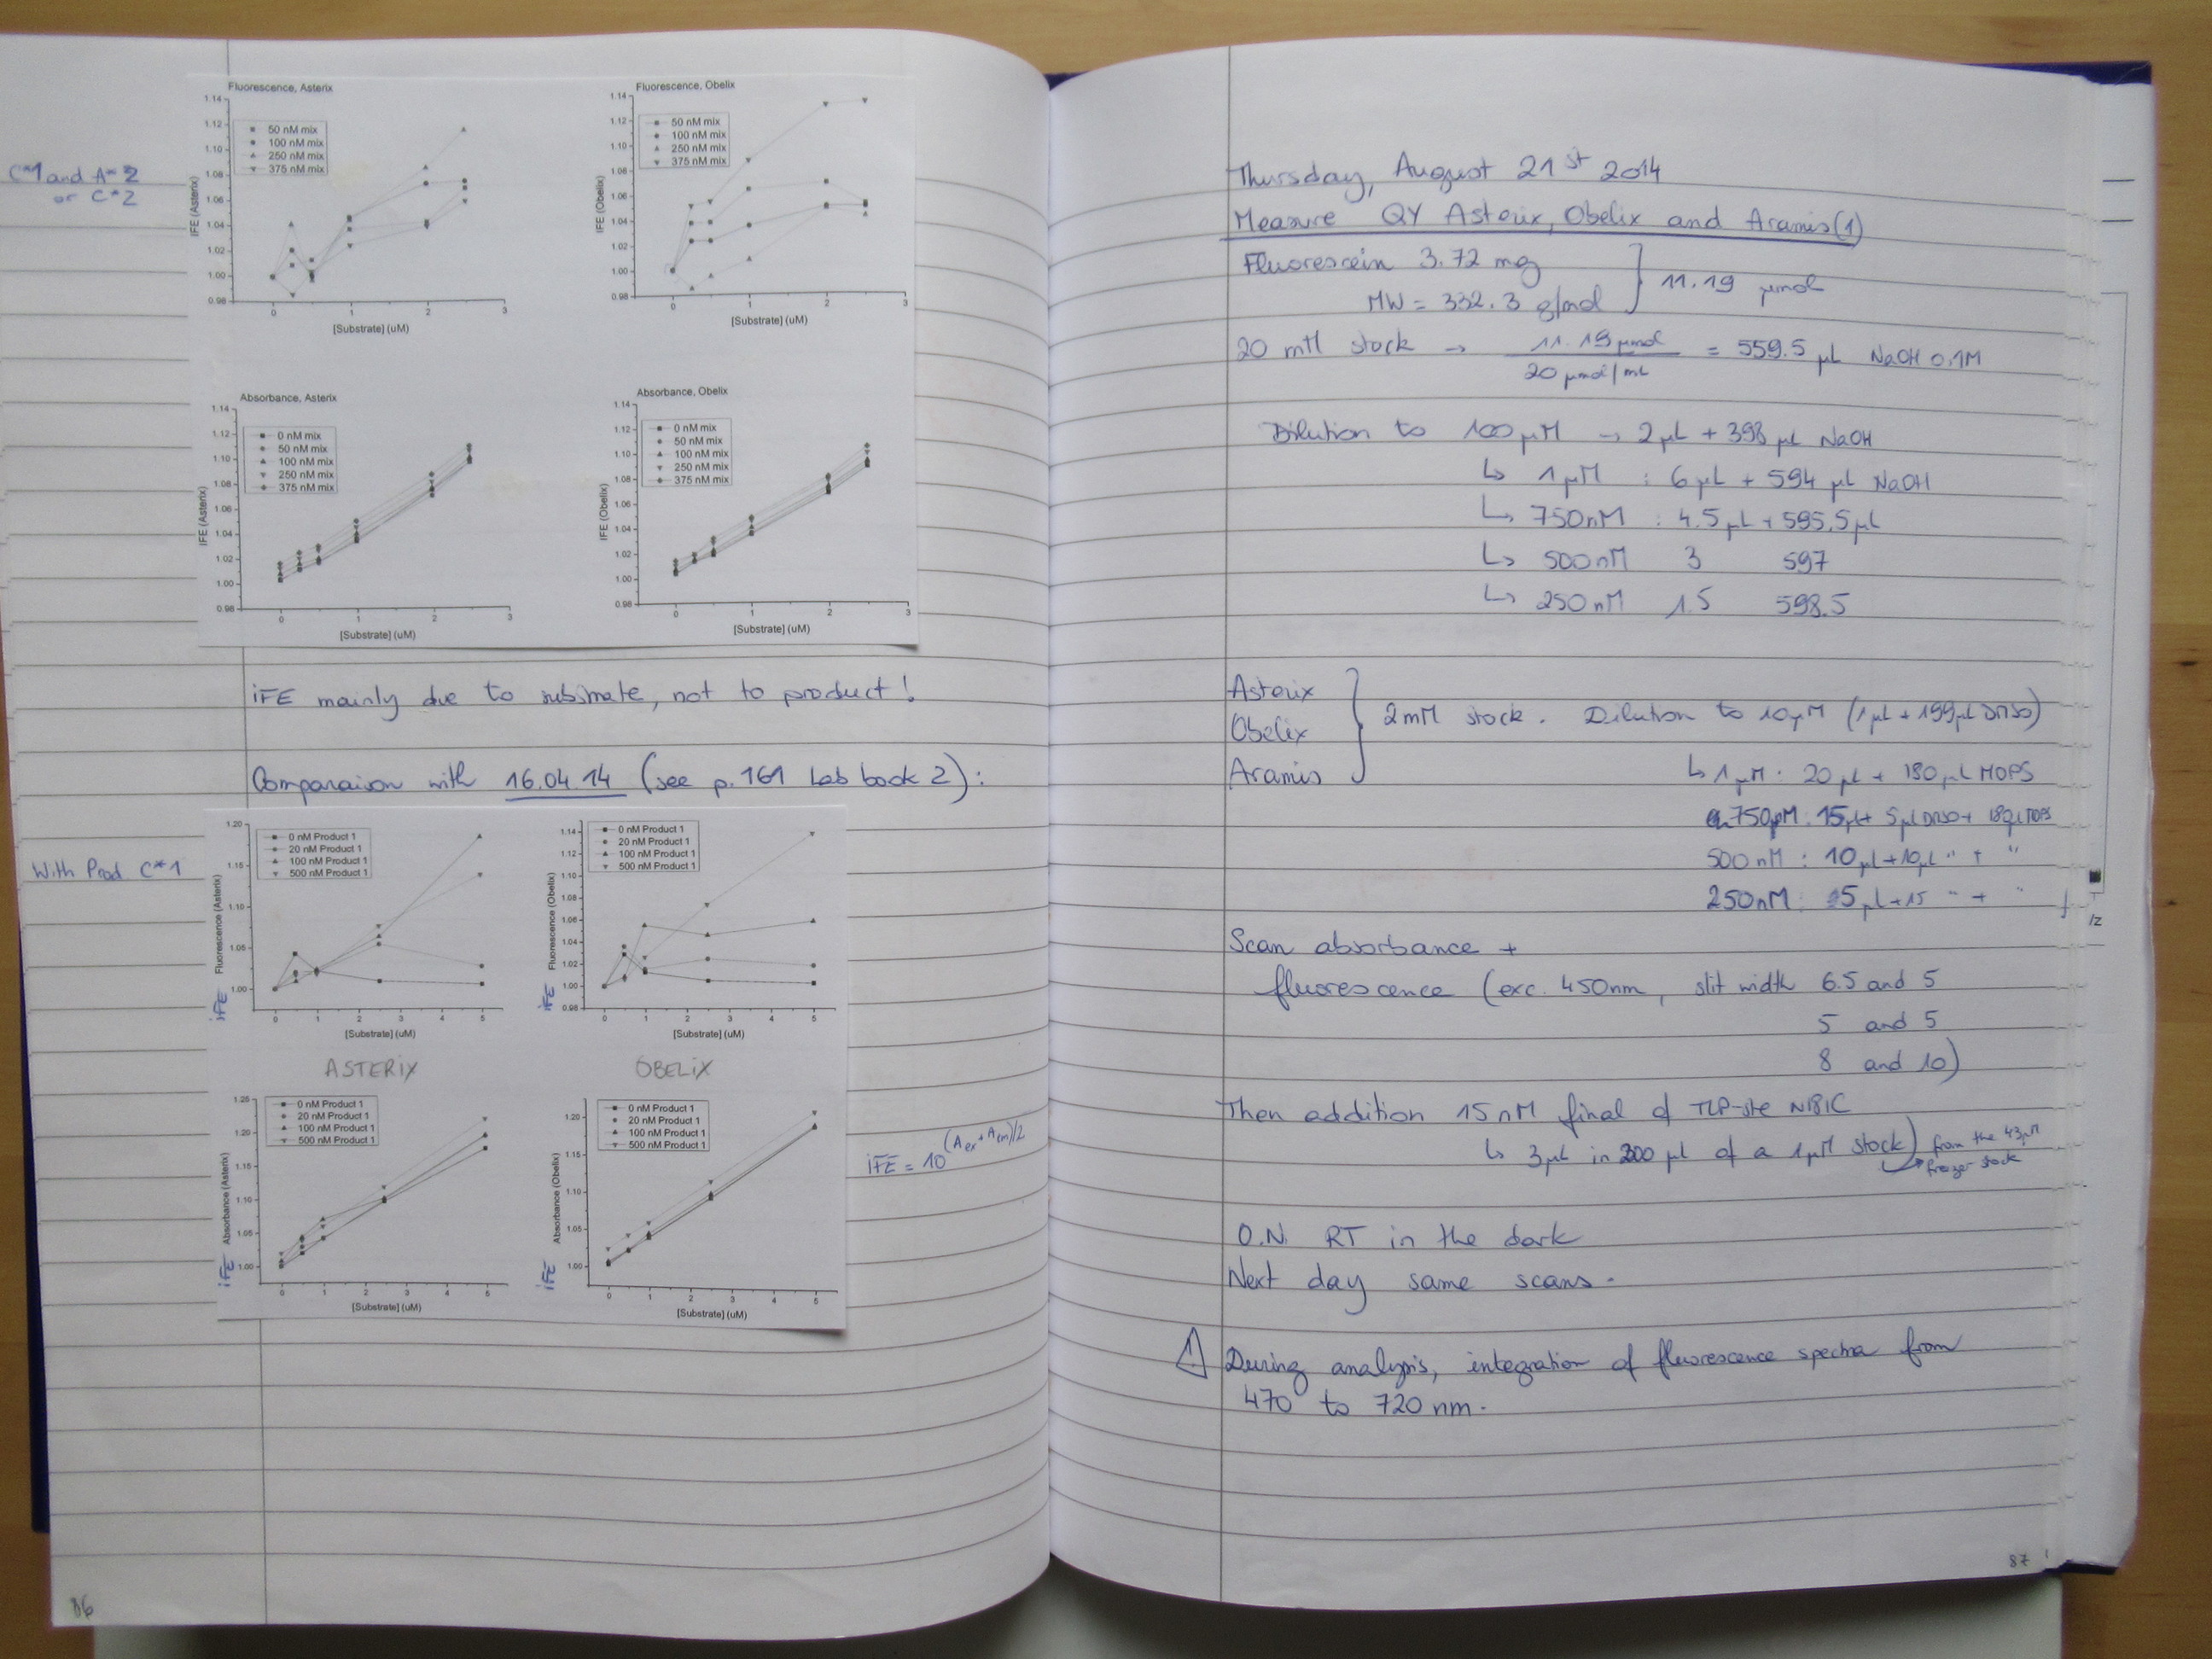 C*1 and A*2
or C*2
Fluorescence, Asterix
1.14
1.12
1.10
1.08
1.06
1.04
1.02
1.00
0.98
50 nM mix
100 nM mix
250 nM mix
375 nM mix
IFE (Asterix)
0 1 2 3
[Substrate] (uM)
Fluorescence, Obelix
1.14
1.12
1.10
1.08
1.06
1.04
1.02
1.00
0.98
50 nM mix
100 nM mix
250 nM mix
375 nM mix
IFE (Obelix)
0 1 2 3
[Substrate] (uM)
Absorbance, Asterix
1.14
1.12
1.10
1.08
1.06
1.04
1.02
1.00
0.98
0 nM mix
50 nM mix
100 nM mix
250 nM mix
375 nM mix
IFE (Asterix)
0 1 2 3
[Substrate] (uM)
Absorbance, Obelix
1.14
1.12
1.10
1.08
1.06
1.04
1.02
1.00
0.98
0 nM mix
50 nM mix
100 nM mix
250 nM mix
375 nM mix
IFE (Obelix)
0 1 2 3
[Substrate] (uM)
iFE mainly due to substrate, not to product!
Comparaison with 16.04.14 (see p.161 Lab book 2):
With Prod. C*1
1.20
1.15
1.10
1.05
1.00
0 nM Product 1
20 nM Product 1
100 nM Product 1
500 nM Product 1
iFE Fluorescence (Asterix)
0 1 2 3 4 5
[Substrate] (uM)
1.14
1.12
1.10
1.08
1.06
1.04
1.02
1.00
0.98
0 nM Product 1
20 nM Product 1
100 nM Product 1
500 nM Product 1
iFE Fluorescence (Obelix)
0 1 2 3 4 5
[Substrate] (uM)
ASTERiX
OBELiX
1.25
1.20
1.15
1.10
1.05
1.00
0 nM Product 1
20 nM Product 1
100 nM Product 1
500 nM Product 1
iFE Absorbance (Asterix)
0 1 2 3 4 5
[Substrate] (uM)
1.20
1.15
1.10
1.05
1.00
0 nM Product 1
20 nM Product 1
100 nM Product 1
500 nM Product 1
iFE Absorbance (Obelix)
0 1 2 3 4 5
[Substrate] (uM)
iFE = 10^(Aex + Aem)/2
86
Thursday, August 21st 2014
Measure QY Asterix, Obelix and Aramis (1)
Fluorescein 3.72 mg
MW = 332.3 g/mol } 11.19 µmol
20 mM stock → 11.19 µmol / 20 µmol/mL = 559.5 µL NaOH 0.1M
Dilution to 100 µM → 2 µL + 398 µL NaOH
↳ 1 µM : 6 µL + 594 µL NaOH
↳ 750 nM : 4.5 µL + 595.5 µL
↳ 500 nM 3 597
↳ 250 nM 1.5 598.5
Asterix
Obelix } 2mM stock. Dilution to 10 µM (1 µL + 199 µL DMSO)
Aramis
↳ 1 µM : 20 µL + 180 µL MOPS
750 : 15 µL + 5 µL DMSO + 180 µL MOPS
500 nM : 10 µL + 10 µL " + "
250 nM : 5 µL + 15 " + "
Scan absorbance +
fluorescence (exc. 450nm, slit width 6.5 and 5
5 and 5
8 and 10)
Then addition 15 nM final of TLP-ste N181C
↳ 3 µL in 200 µL of a 1 µM stock) from the 43 µM
freezer stock
O.N. RT in the dark
Next day same scans.
! During analysis, integration of fluorescence spectra from
470 to 720 nm.
87
/2